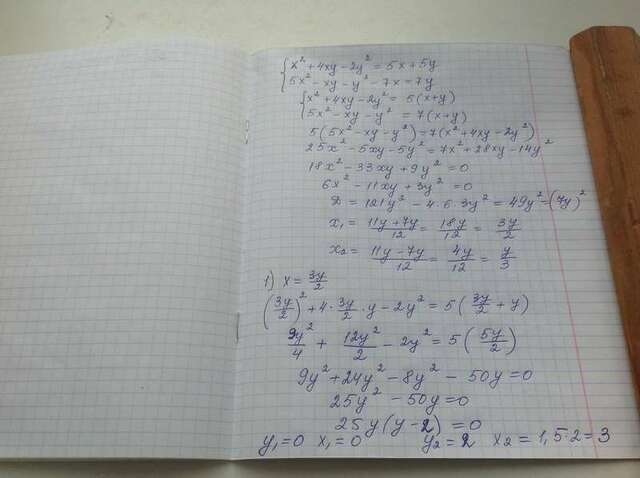 { x² + 4xy - 2y² = 5x + 5y
5x² - xy - y² - 7x = 7y
{ x² + 4xy - 2y² = 5(x+y)
5x² - xy - y² = 7(x+y)
5(5x² - xy - y²) = 7(x² + 4xy - 2y²)
25x² - 5xy - 5y² = 7x² + 28xy - 14y²
18x² - 33xy + 9y² = 0
6x² - 11xy + 3y² = 0
D = 121y² - 4·6·3y² = 49y² = (7y)²
x₁ = (11y + 7y)/12 = 18y/12 = 3y/2
x₂ = (11y - 7y)/12 = 4y/12 = y/3
1) x = 3y/2
(3y/2)² + 4·3y/2·y - 2y² = 5(3y/2 + y)
9y²/4 + 12y²/2 - 2y² = 5(5y/2)
9y² + 24y² - 8y² - 50y = 0
25y² - 50y = 0
25y(y - 2) = 0
y₁ = 0 x₁ = 0 y₂ = 2 x₂ = 1,5·2 = 3